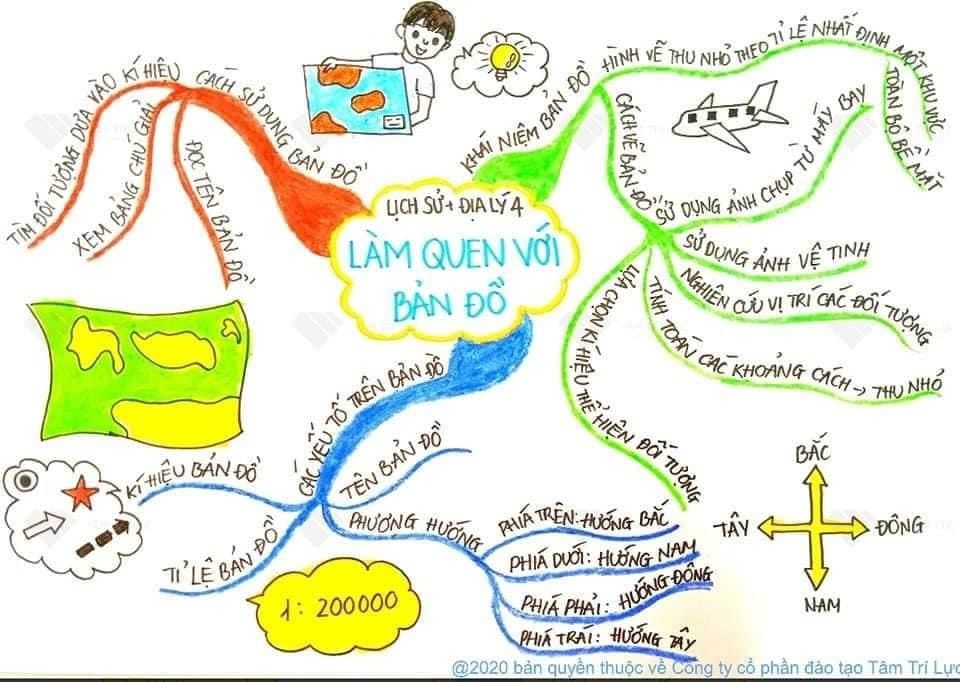 LỊCH SỬ + ĐỊA LÝ 4
LÀM QUEN VỚI
BẢN ĐỒ
KHÁI NIỆM BẢN ĐỒ
HÌNH VẼ THU NHỎ THEO TỈ LỆ NHẤT ĐỊNH
MỘT KHU VỰC
TOÀN BỘ BỀ MẶT
CÁCH VẼ BẢN ĐỒ
SỬ DỤNG ẢNH CHỤP TỪ MÁY BAY
SỬ DỤNG ẢNH VỆ TINH
NGHIÊN CỨU VỊ TRÍ CÁC ĐỐI TƯỢNG
TÍNH TOÁN CÁC KHOẢNG CÁCH → THU NHỎ
LỰA CHỌN KÍ HIỆU THỂ HIỆN ĐỐI TƯỢNG
CÁC YẾU TỐ TRÊN BẢN ĐỒ
TÊN BẢN ĐỒ
PHƯƠNG HƯỚNG
PHÍA TRÊN: HƯỚNG BẮC
PHÍA DƯỚI: HƯỚNG NAM
PHÍA PHẢI: HƯỚNG ĐÔNG
PHÍA TRÁI: HƯỚNG TÂY
TỈ LỆ BẢN ĐỒ
1: 200000
KÍ HIỆU BẢN ĐỒ
CÁCH SỬ DỤNG BẢN ĐỒ
ĐỌC TÊN BẢN ĐỒ
XEM BẢNG CHÚ GIẢI
TÌM ĐỐI TƯỢNG DỰA VÀO KÍ HIỆU
BẮC
TÂY
ĐÔNG
NAM
@2020 bản quyền thuộc về Công ty cổ phần đào tạo Tâm Trí Lực